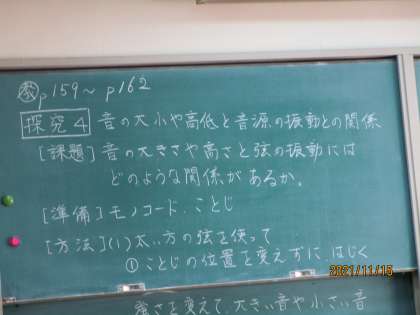 教p159～p162
探究4 音の大小や高低と音源の振動との関係
[課題]音の大きさや高さと弦の振動には
どのような関係があるか。
[準備]モノコード、ことじ
[方法](1)太い方の弦を使って
①ことじの位置を変えずに、はじく
2021/11/15
強さを変えて、大きい音や小さい音